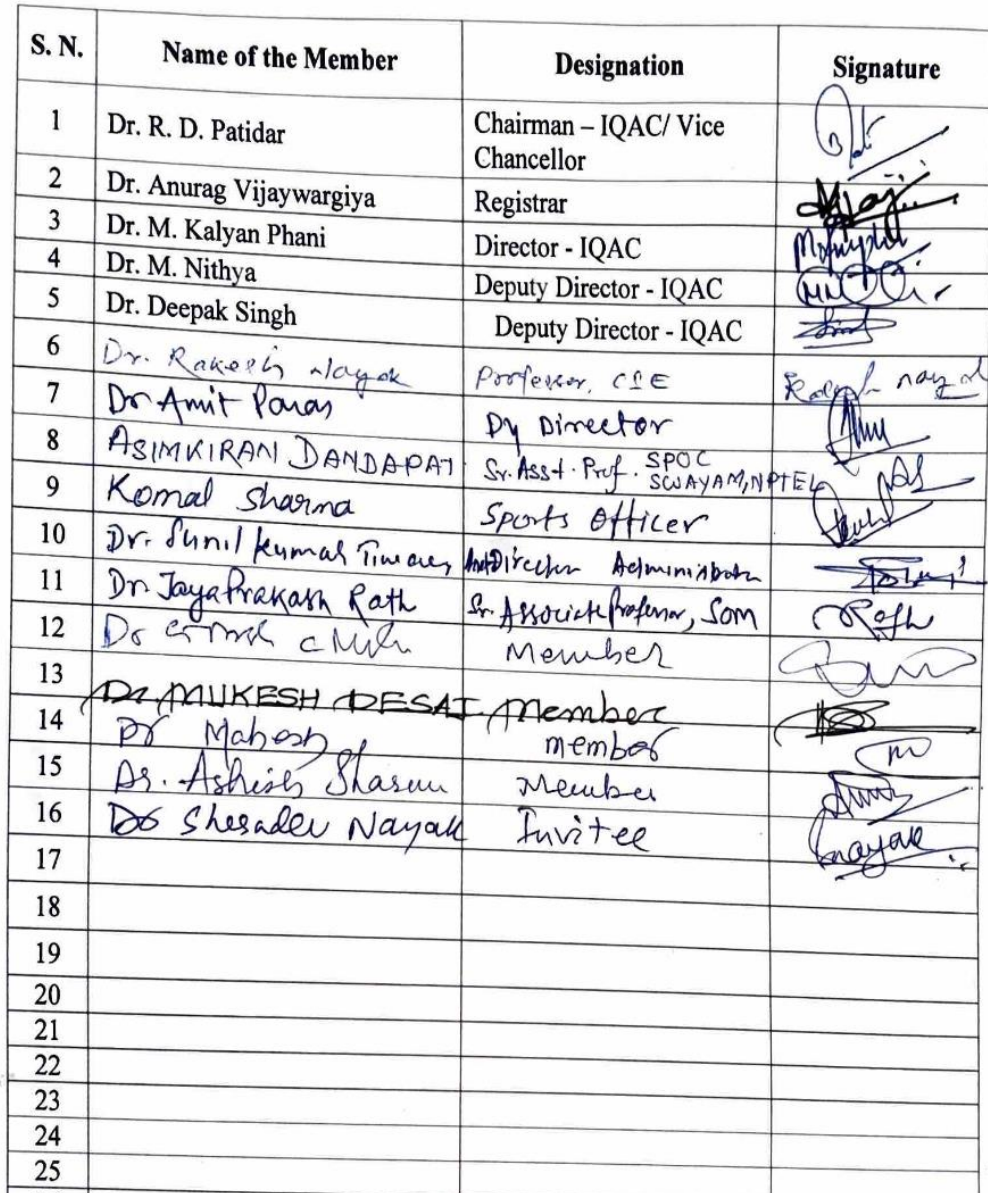 S. N. Name of the Member Designation Signature
1 Dr. R. D. Patidar Chairman – IQAC/ Vice
Chancellor
2 Dr. Anurag Vijaywargiya Registrar
3 Dr. M. Kalyan Phani Director - IQAC
4 Dr. M. Nithya Deputy Director - IQAC
5 Dr. Deepak Singh Deputy Director - IQAC
6 Dr. Rakesh Nayak Professor, CSE Rakesh nayak
7 Dr Amit Paras Dy Director
8 ASIMKIRAN DANDAPAT Sr. Asst. Prof. SPOC
SWAYAM, NPTEL
9 Komal Sharma Sports Officer
10 Dr. Sunil Kumar Tiwari Director
11 Dr. JayaPrakash Rath Sr. Associate Professor, SOM Rath
12 Dr Member
13 Dr. MUKESH DESAI Member
14 Dr Mahesh member
15 Dr. Ashish Sharma Member
16 Dr Shesadev Nayak Invitee Nayak
17
18
19
20
21
22
23
24
25